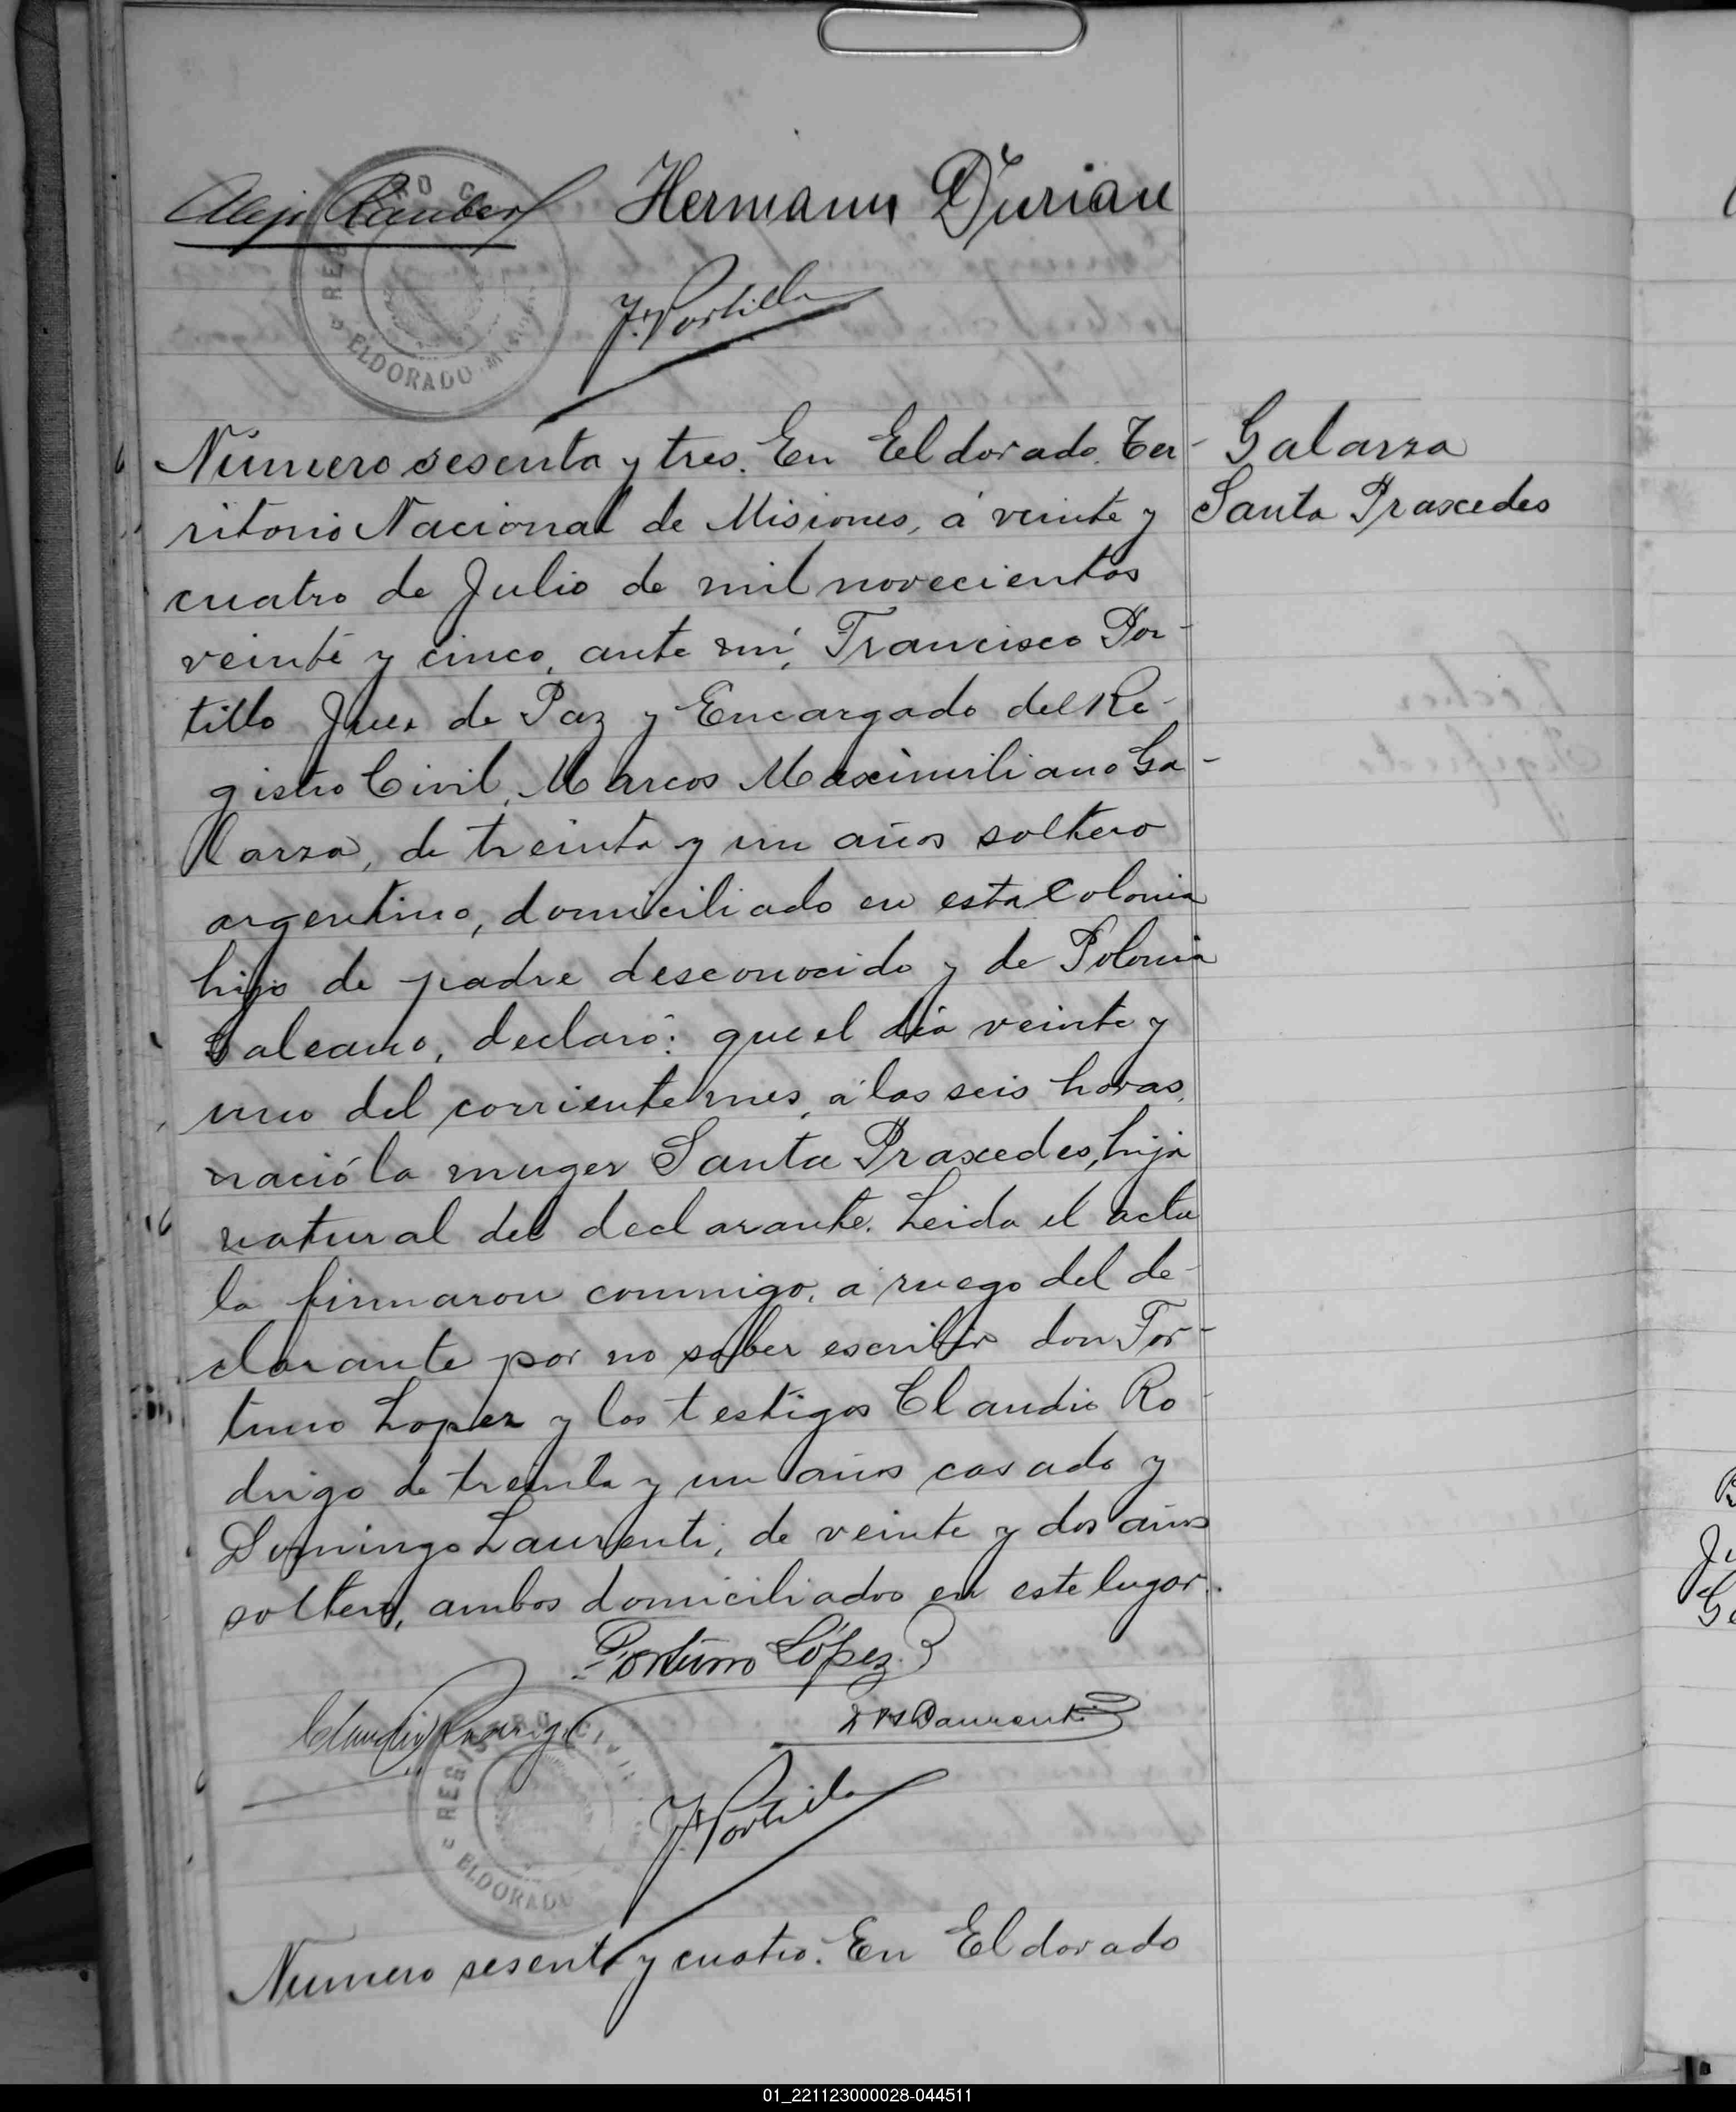 Alejo Rauber Hermann Durian
REGISTRO CIVIL ELDORADO Misiones
F. Portillo
Número sesenta y tres. En Eldorado. Ter-
ritorio Nacional de Misiones, á veinte y
cuatro de Julio de mil novecientos
veinte y cinco, ante mí, Francisco Por-
tillo Juez de Paz y Encargado del Re-
gistro Civil, Marcos Maximiliano Ga-
larza, de treinta y un años soltero
argentino, domiciliado en esta Colonia
hijo de padre desconocido y de Polonia
Galeano, declaró: que el día veinte y
uno del corriente mes, á las seis horas,
nació la muger Santa Praxedes, hija
natural del declarante. Leida el acta
la firmaron conmigo, á ruego del de-
clarante por no saber escribir don For-
tuno Lopez y los testigos Claudio Ro-
drigo de treinta y un años casado y
Domingo Laurenti, de veinte y dos años
soltero, ambos domiciliados en este lugar.
Galarza
Santa Praxedes
Fortuno López
Claudio Rodrigo
Laurenti
REGISTRO CIVIL ELDORADO
F. Portillo
Numero sesenta y cuatro. En Eldorado
01_221123000028-044511